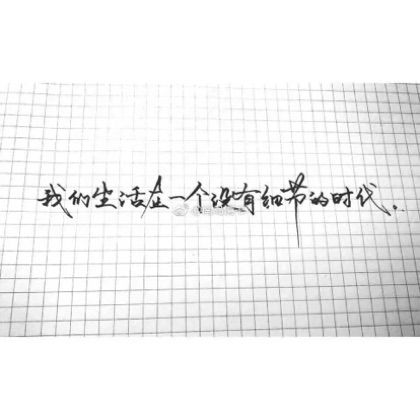 我们生活在一个没有细节的时代.